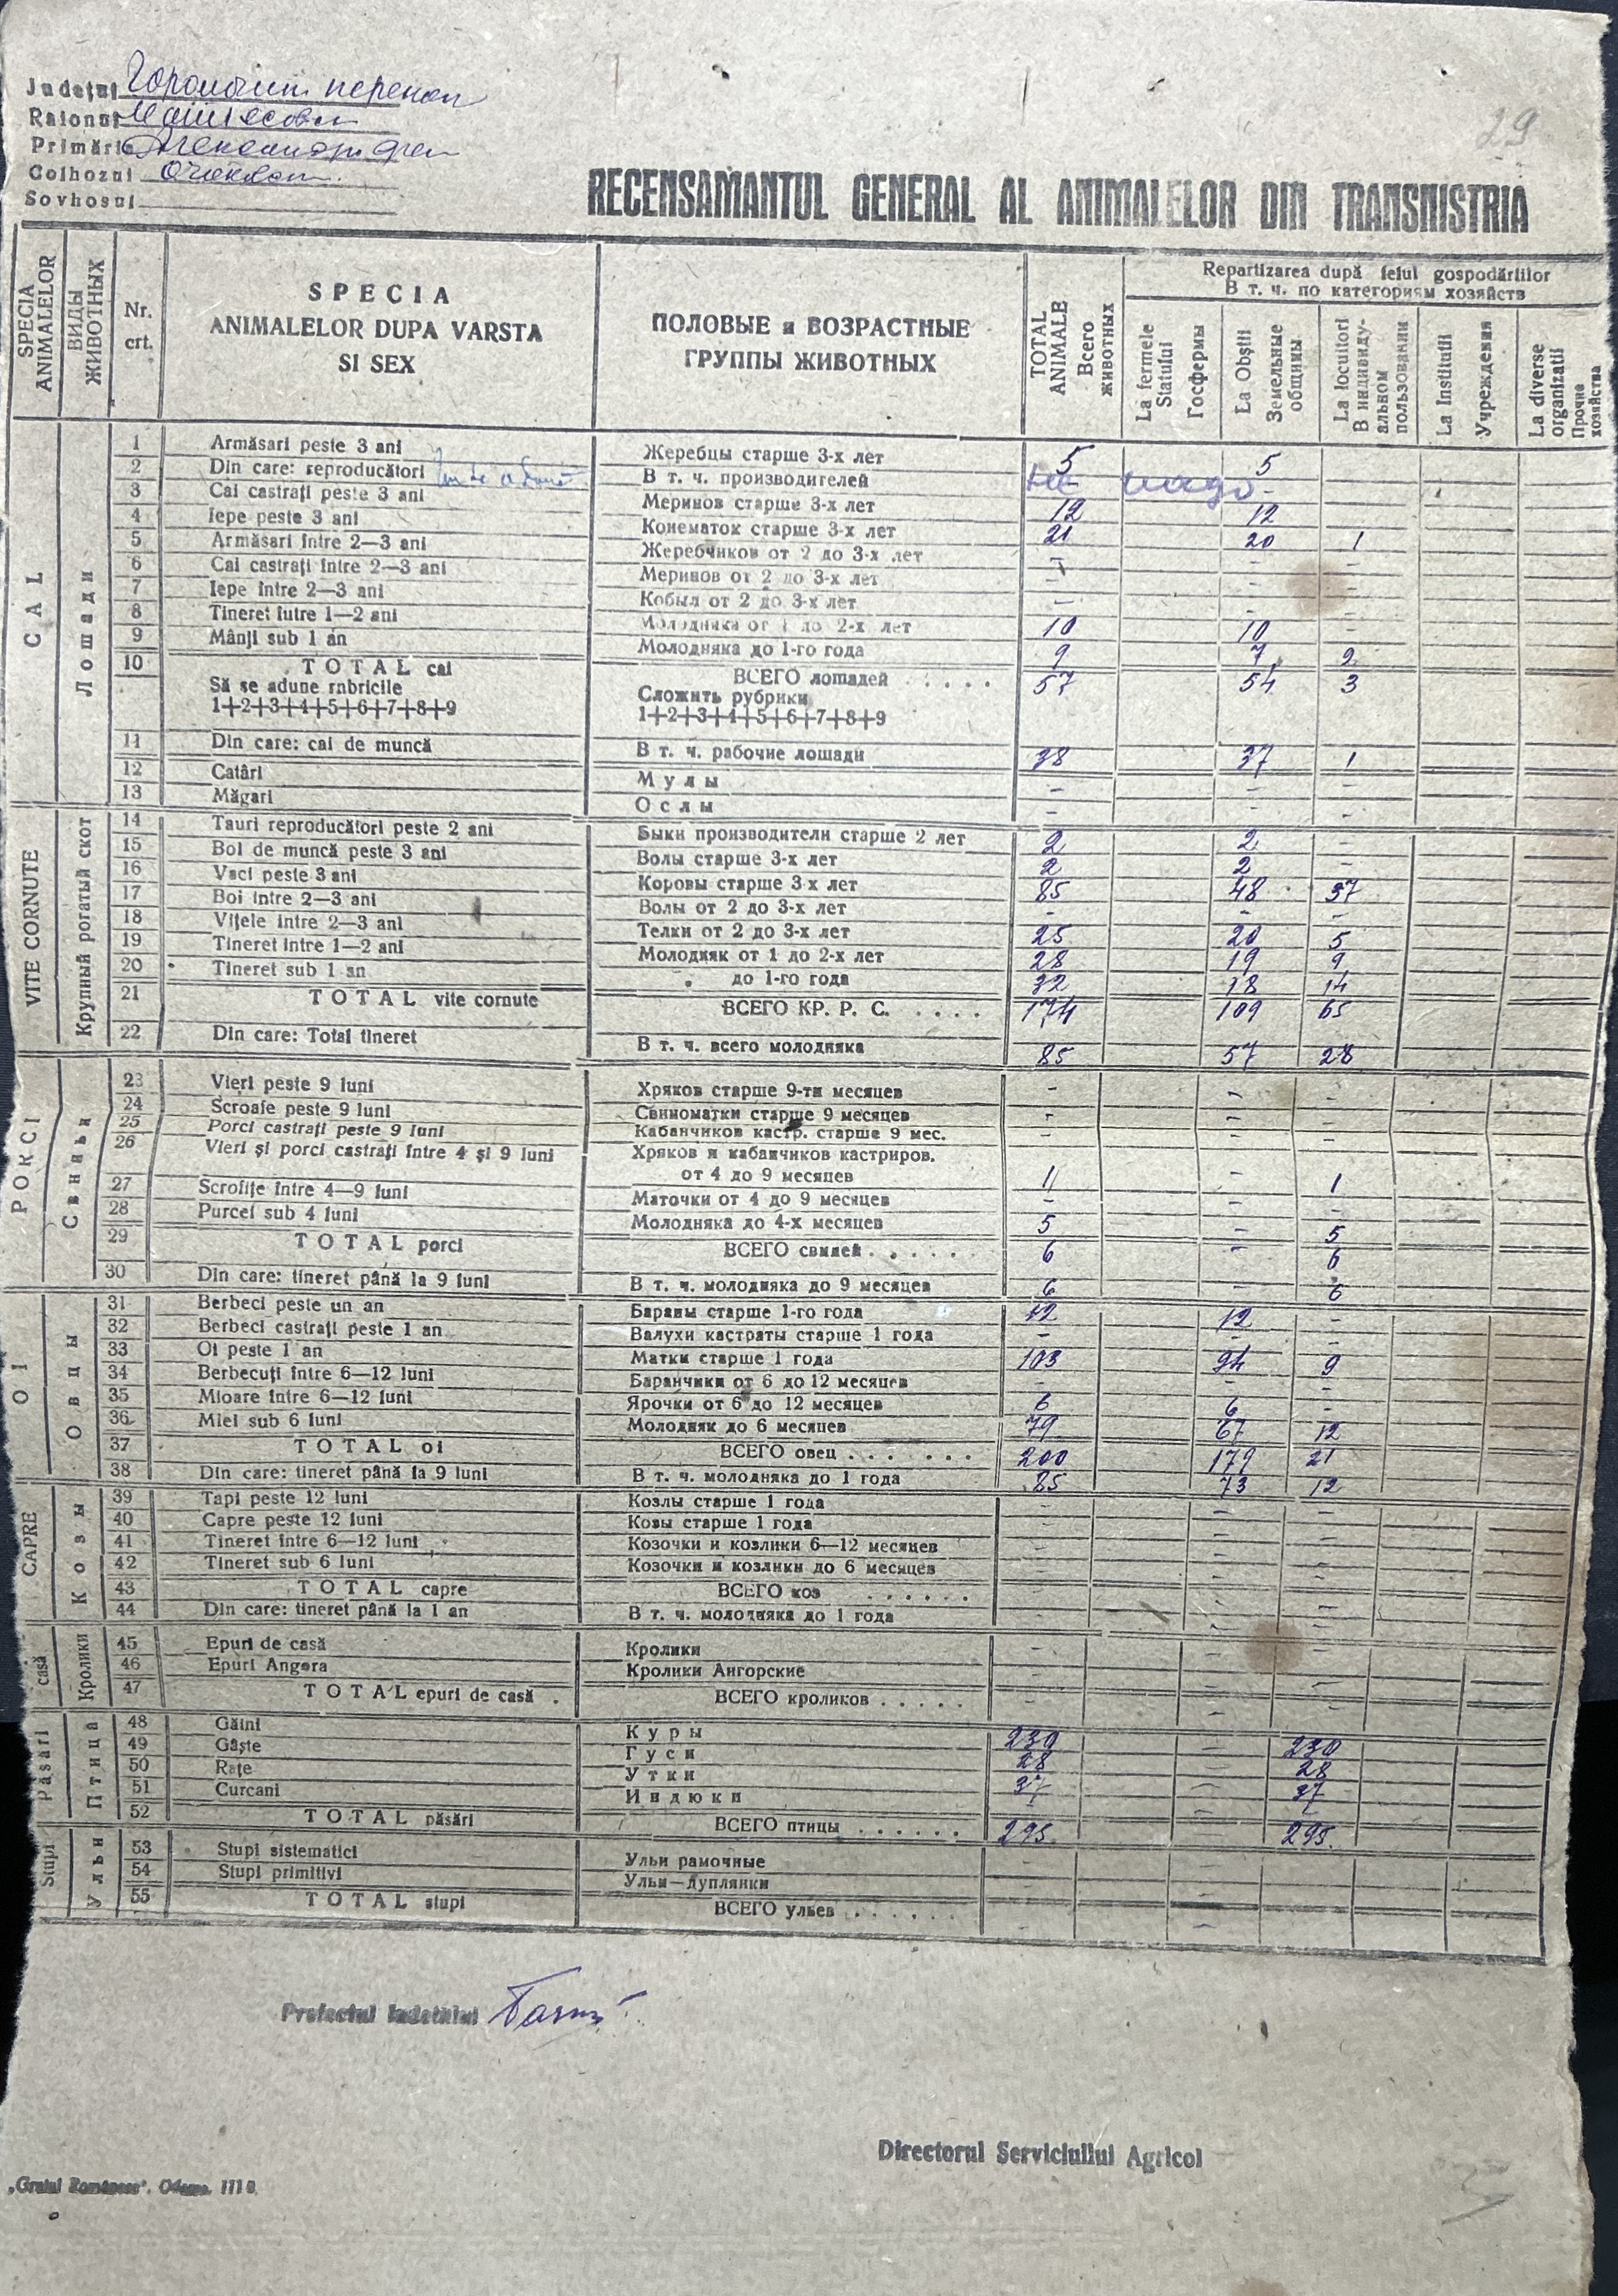 29
Județul
Raionul
Primăria
Colhozul
Sovhosul
RECENSAMANTUL GENERAL AL ANIMALELOR DIN TRANSNISTRIA
SPECIA ANIMALELOR ВИДЫ ЖИВОТНЫХ Nr. crt. SPECIA ANIMALELOR DUPA VARSTA SI SEX ПОЛОВЫЕ и ВОЗРАСТНЫЕ ГРУППЫ ЖИВОТНЫХ TOTAL ANIMALE Всего животных
Repartizarea după felul gospodăriilor
В т. ч. по категориям хозяйств
La fermele Statului Госфермы La Obștii Земельные общины La locuitori В индивидуальном пользовании La Institutii Учреждения La diverse organizatii Прочие хозяйства
CAL Лошади
1 Armăsari peste 3 ani Жеребцы старше 3-х лет 5 5
2 Din care: reproducători В т. ч. производителей не надо
3 Cai castrați peste 3 ani Меринов старше 3-х лет 12 12
4 Iepe peste 3 ani Конематок старше 3-х лет 21 20 1
5 Armăsari între 2—3 ani Жеребчиков от 2 до 3-х лет - - -
6 Cai castrați între 2—3 ani Меринов от 2 до 3-х лет - - -
7 Iepe între 2—3 ani Кобыл от 2 до 3-х лет - - -
8 Tineret iutre 1—2 ani Молодняка от 1 до 2-х лет 10 10 -
9 Mânji sub 1 an Молодняка до 1-го года 9 7 2
10 TOTAL cai ВСЕГО лошадей . . . . . 57 54 3
Să se adune rnbricile Сложить рубрики
1+2+3+4+5+6+7+8+9 1+2+3+4+5+6+7+8+9
11 Din care: cai de muncă В т. ч. рабочие лошади 38 37 1
12 Catâri Мулы - - -
13 Măgari Ослы - - -
VITE CORNUTE Крупный рогатый скот
14 Tauri reproducători peste 2 ani Быки производители старше 2 лет 2 2 -
15 Boi de muncă peste 3 ani Волы старше 3-х лет 2 2 -
16 Vaci peste 3 ani Коровы старше 3-х лет 85 48 37
17 Boi între 2—3 ani Волы от 2 до 3-х лет - - -
18 Vițele între 2—3 ani Телки от 2 до 3-х лет 25 20 5
19 Tineret între 1—2 ani Молодняк от 1 до 2-х лет 28 19 9
20 Tineret sub 1 an „ до 1-го года 32 18 14
21 TOTAL vite cornute ВСЕГО КР. Р. С. . . . . 174 109 65
22 Din care: Total tineret В т. ч. всего молодняка 85 57 28
PORCI Свиньи
23 Vieri peste 9 luni Хряков старше 9-ти месяцев - - -
24 Scroafe peste 9 luni Свиноматки старше 9 месяцев - - -
25 Porci castrați peste 9 luni Кабанчиков кастр. старше 9 мес. - - -
26 Vieri și porci castrați între 4 și 9 luni Хряков и кабанчиков кастриров.
от 4 до 9 месяцев 1 - 1
27 Scrofițe între 4—9 luni Маточки от 4 до 9 месяцев - - -
28 Purcei sub 4 luni Молодняка до 4-х месяцев 5 - 5
29 TOTAL porci ВСЕГО свиней . . . . . 6 - 6
30 Din care: tineret până la 9 luni В т. ч. молодняка до 9 месяцев 6 6
OI Овцы
31 Berbeci peste un an Бараны старше 1-го года 12 12 -
32 Berbeci castrați peste 1 an Валухи кастраты старше 1 года - - -
33 Oi peste 1 an Матки старше 1 года 103 94 9
34 Berbecuți între 6—12 luni Баранчики от 6 до 12 месяцев - - -
35 Mioare între 6—12 luni Ярочки от 6 до 12 месяцев 6 6 -
36 Miei sub 6 luni Молодняк до 6 месяцев 79 67 12
37 TOTAL oi ВСЕГО овец . . . . . . 200 179 21
38 Din care: tineret până la 9 luni В т. ч. молодняка до 1 года 85 73 12
CAPRE Козы
39 Tapi peste 12 luni Козлы старше 1 года - - -
40 Capre peste 12 luni Козы старше 1 года - - -
41 Tineret între 6—12 luni Козочки и козлики 6—12 месяцев - - -
42 Tineret sub 6 luni Козочки и козлики до 6 месяцев - - -
43 TOTAL capre ВСЕГО коз . . . . . . - -
44 Din care: tineret până la 1 an В т. ч. молодняка до 1 года - -
casă Кролики
45 Epuri de casă Кролики - - -
46 Epuri Angora Кролики Ангорские - - -
47 TOTAL epuri de casă . ВСЕГО кроликов . . . . . - - -
Păsări Птица
48 Găini Куры 230 - 230
49 Gâște Гуси 28 - 28
50 Rațe Утки 37 - 37
51 Curcani Индюки - - -
52 TOTAL păsări ВСЕГО птицы . . . . . . 295 - 295
Stupi Ульи
53 Stupi sistematici Ульи рамочные - - -
54 Stupi primitivi Ульи—Дуплянки - - -
55 TOTAL stupi ВСЕГО ульев . . . . . . - -
Prefectul Județului
Directorul Serviciului Agricol
„Graiul Românesc".